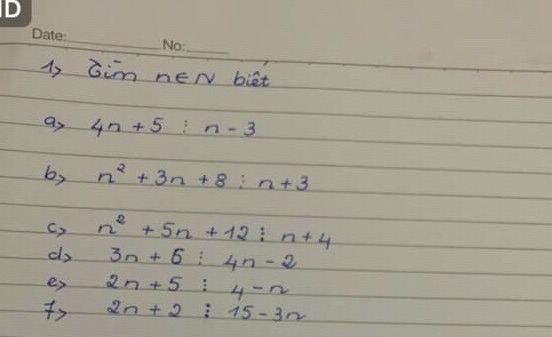 ID
Date: No:
1> Tìm n∈N biết
a> 4n + 5 ⋮ n - 3
b> n² + 3n + 8 ⋮ n + 3
c> n² + 5n + 12 ⋮ n + 4
d> 3n + 6 ⋮ 4n - 2
e> 2n + 5 ⋮ 4 - n
f> 2n + 2 ⋮ 15 - 3n